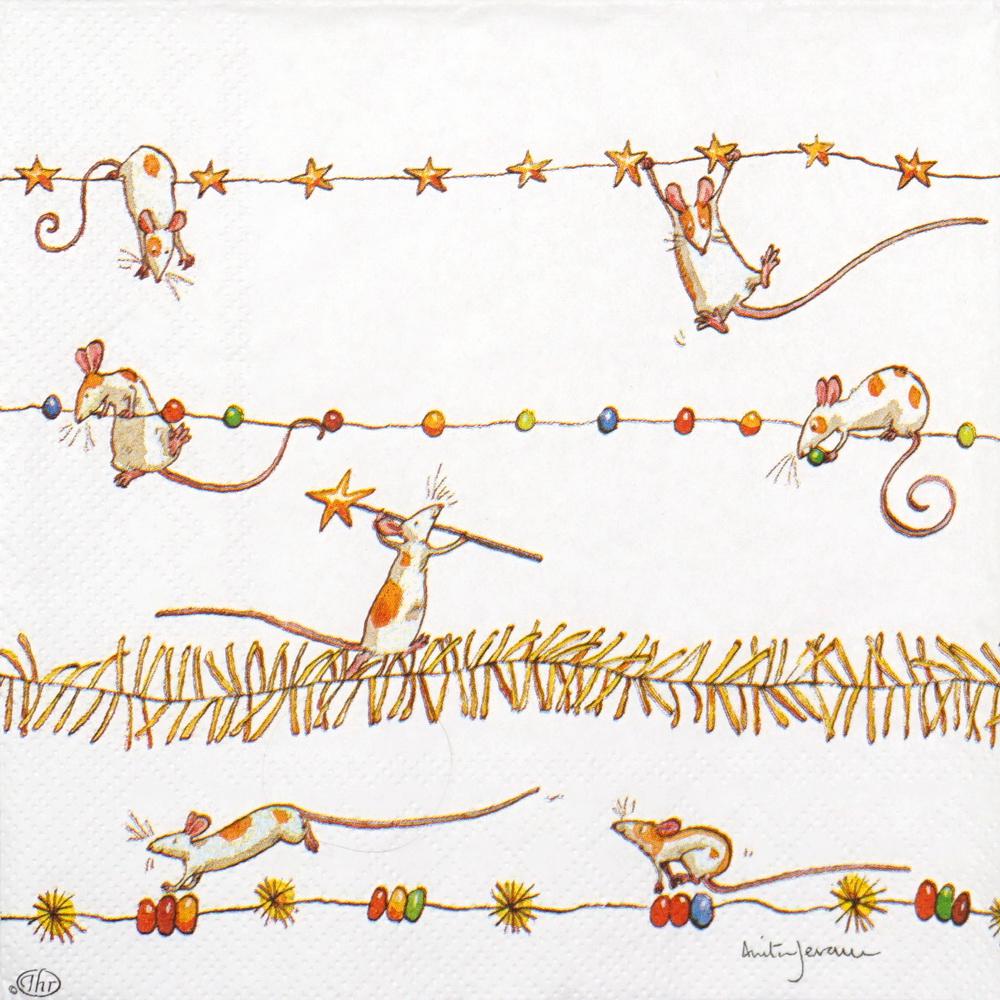 Anita Jeram
© Ihr